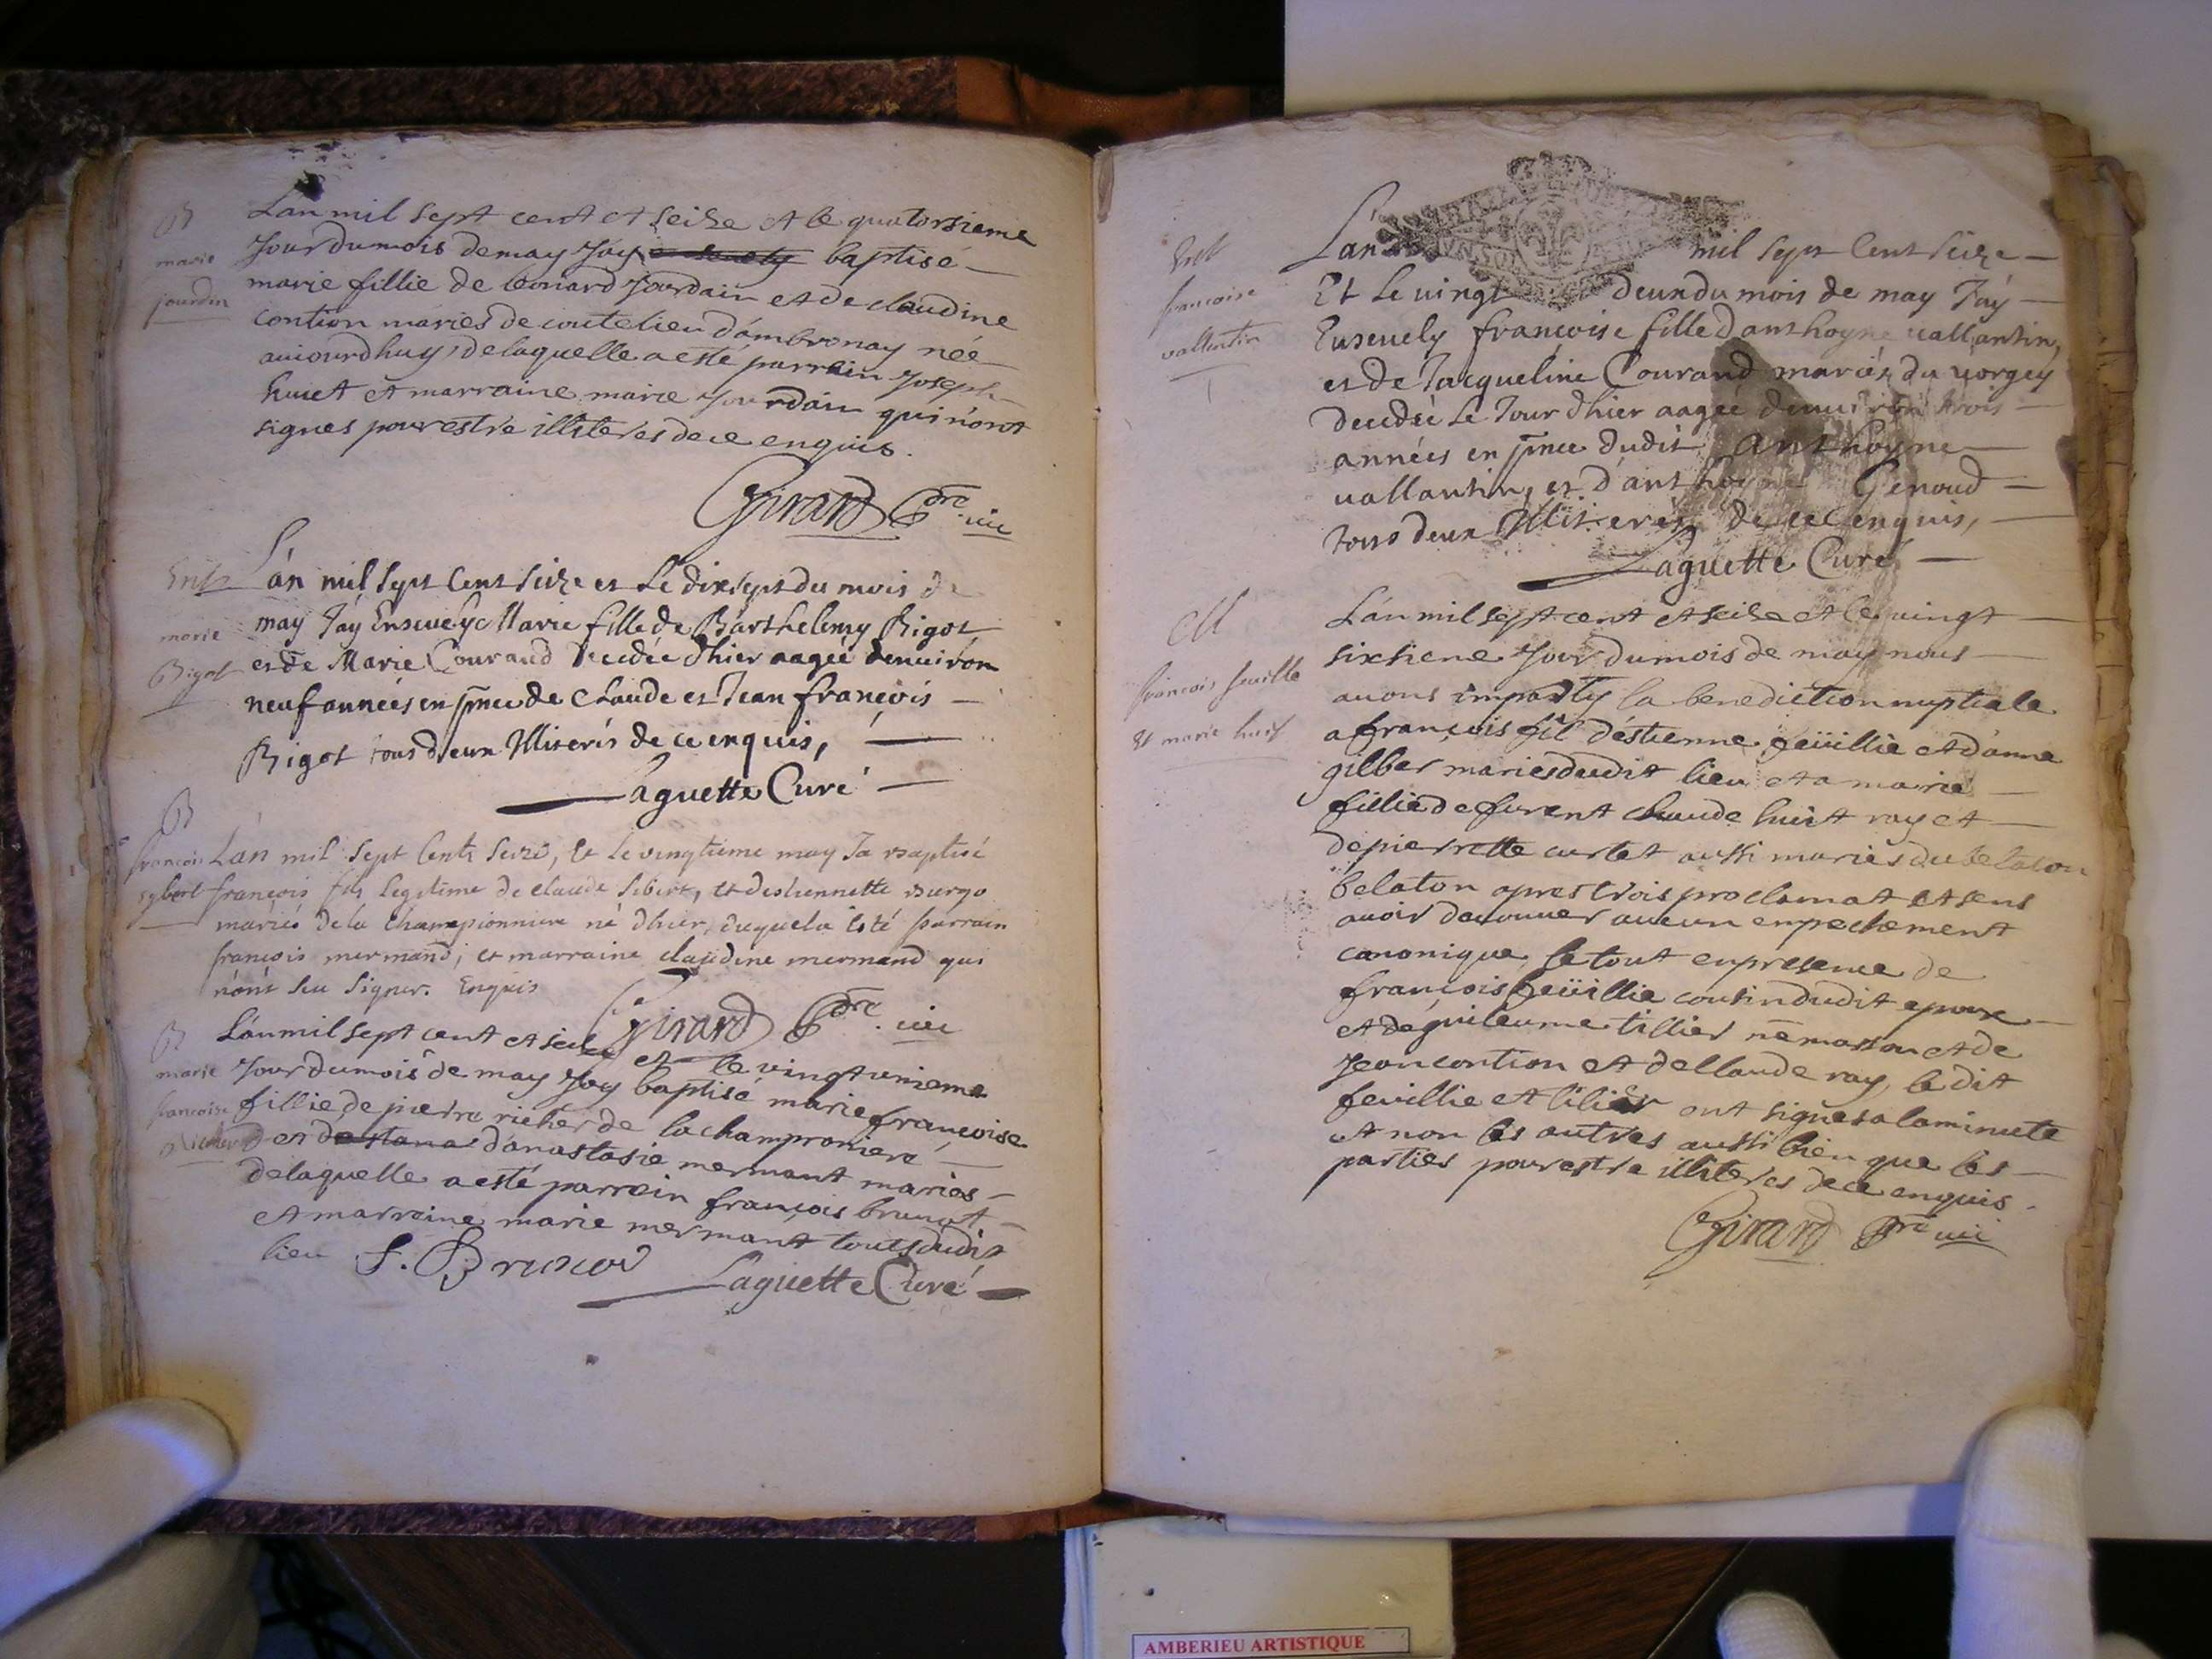 B
marie
jourdin
Lan mil sept cent et seize et le quatorsieme
Jour du mois de may Jáy baptisé
marie fillie de leonard Jourdain et de claudine
contion mariés de coutelieu dámbronay née
aujourdhuy, de laquelle a esté parrain Joseph
huiet et marraine marie Jourdain qui nónt
signes pour estre illiterés de ce enquis.
Girard Ptre vic
Ent
marie
Rigot
Lán mil sept Cent seize et Le dixsept du mois de
may Jáy Ensevely Marie fille de Barthelemy Rigot
et de Marie Courand Decedée dhier aageé denuiron
neuf années en pnce de Claude et Jean françois
Rigot tous deux Illiterés de ce enquis,
Laguette Curé
B
francois
sybert
Lán mil sept Cents seize, Et le vingtieme may Ja baptisé
françois fils legitime de claude sibert, et destiennette burgo
mariés de la Championniere né dhier, duquel a Esté parrain
françois mermand, et marraine claudine mermand qui
nónt seu signer. Enquis
Girard Ptre vic
B
marie
francoise
richerd
Lán mil sept cent et seize et le vingt unieme
Jour du mois de may Jay baptisé marie françoise
fillie de pierre richer de la champroniere
et dánastasie mermant mariés
de laquelle a esté parrein françois brunot
et marraine marie mermant touts dudit
lieu F. Brunod
Laguette Curé
Ent
francoise
vallentin
Lán mil sept Cent seize
Et Le vingt deux du mois de may Jáy
Ensevely françoise fille Danthoyne vallantin,
et de Jacqueline Courand mariés du vorgey
Decedée Le Jour dhier aageé denuiron trois
années en pnce dudit Anthoyne
vallantin, et dánthoyne Genoud
tous deux Illiterés de ce enquis,
Laguette Curé
M
francois feuille
Et marie huit
Lán mil sept cent et seize et le vingt
sixsieme Jour du mois de may nous
avons imparty la benediction nuptiale
a françois fil déstienne feüillie et dánne
gilber mariés dudit lieu et a marie
fillie de furent claude huit ray et
de pierrette curtet aussi mariés du belaton
belaton apres trois proclamat et sens
avoir decouver aucun enpechement
canonique, le tout en presence de
françois feüillie cousin dudit epoux
et de guileaume tillier et de
Jean contion et de Claude ray, le dit
feuillie et tilier ont signes a la minute
et non les autres aussi bien que les
parties pour estre illiterés de ce enquis.
Girard Ptre vic
AMBERIEU ARTISTIQUE